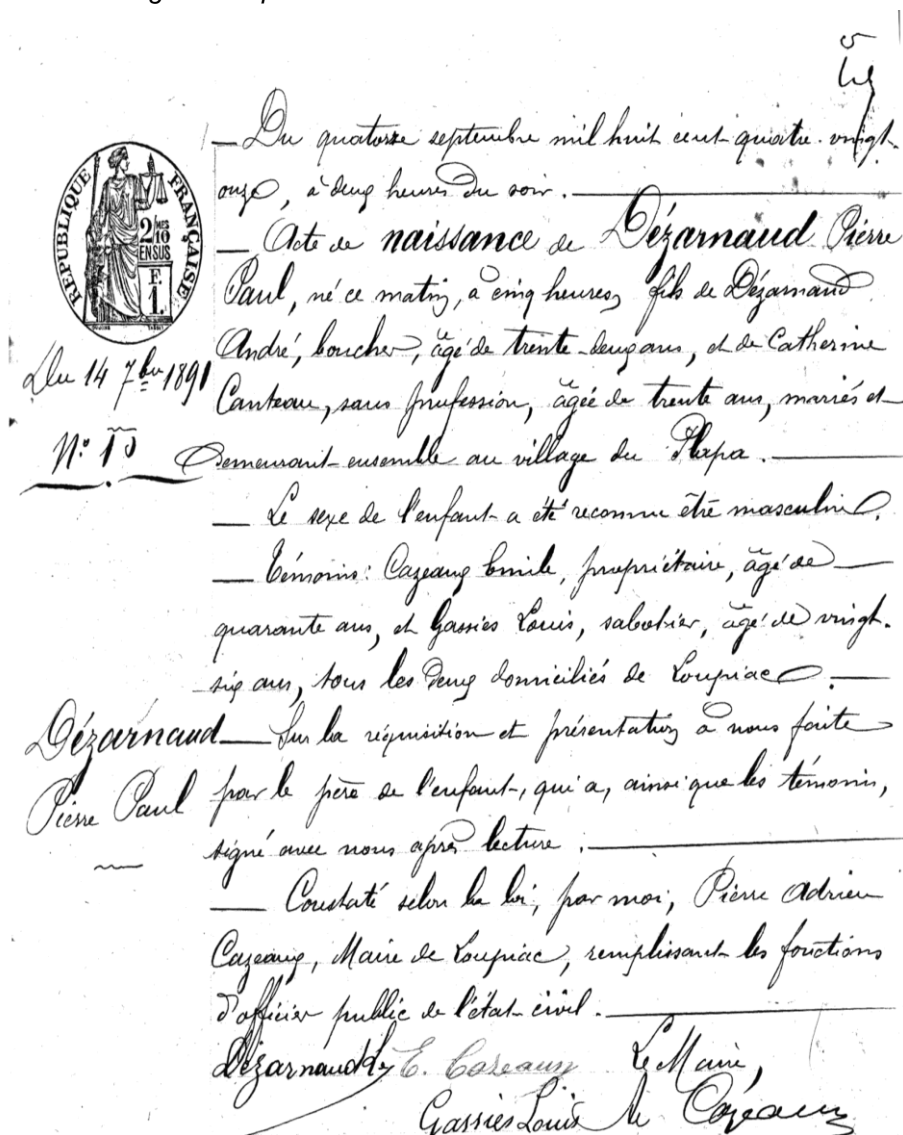 5
Du quatorze septembre mil huit cent quatre-vingt-
onze, à deux heures du soir.
RÉPUBLIQUE FRANÇAISE
2/10 EN SUS
F. 1.
Acte de naissance de Dézarnaud Pierre
Paul, né ce matin, à cinq heures, fils de Dézarnaud
André, boucher, âgé de trente-deux ans, et de Catherine
Du 14 7bre 1891
Canteau, sans profession, âgée de trente ans, mariés et
N°
demeurant ensemble au village du
Le sexe de l'enfant a été reconnu être masculin.
Témoins: Cazeaux Emile, propriétaire, âgé de
quarante ans, et Gassies Louis, sabotier, âgé de vingt-
six ans, tous les deux domiciliés de Loupiac.
Dézarnaud
Pierre Paul
Sur la réquisition et présentation à nous faite
par le père de l'enfant, qui a, ainsi que les témoins,
signé avec nous après lecture.
Constaté selon la loi, par moi, Pierre Adrien
Cazeaux, Maire de Loupiac, remplissant les fonctions
d'officier public de l'état-civil.
Dézarnaud E. Cazeaux Le Maire,
Gassies Louis Cazeaux